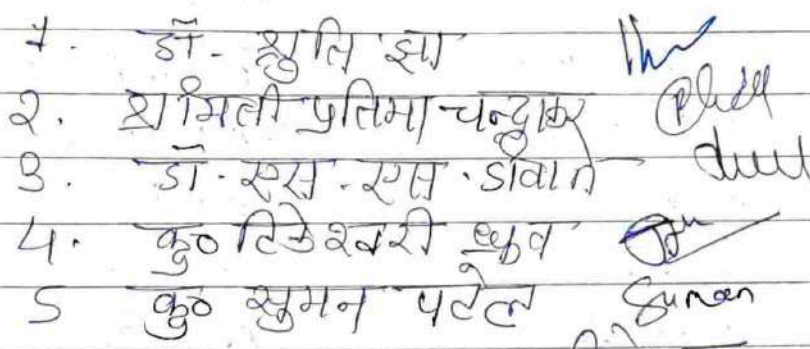 1. डॉ. श्रुति झा
2. श्रीमती प्रतिमा चन्द्राकर
3. डॉ. एस. एस.
4. कु० टिकेश्वरी ध्रुव
5 कु० सुमन पटेल Suman